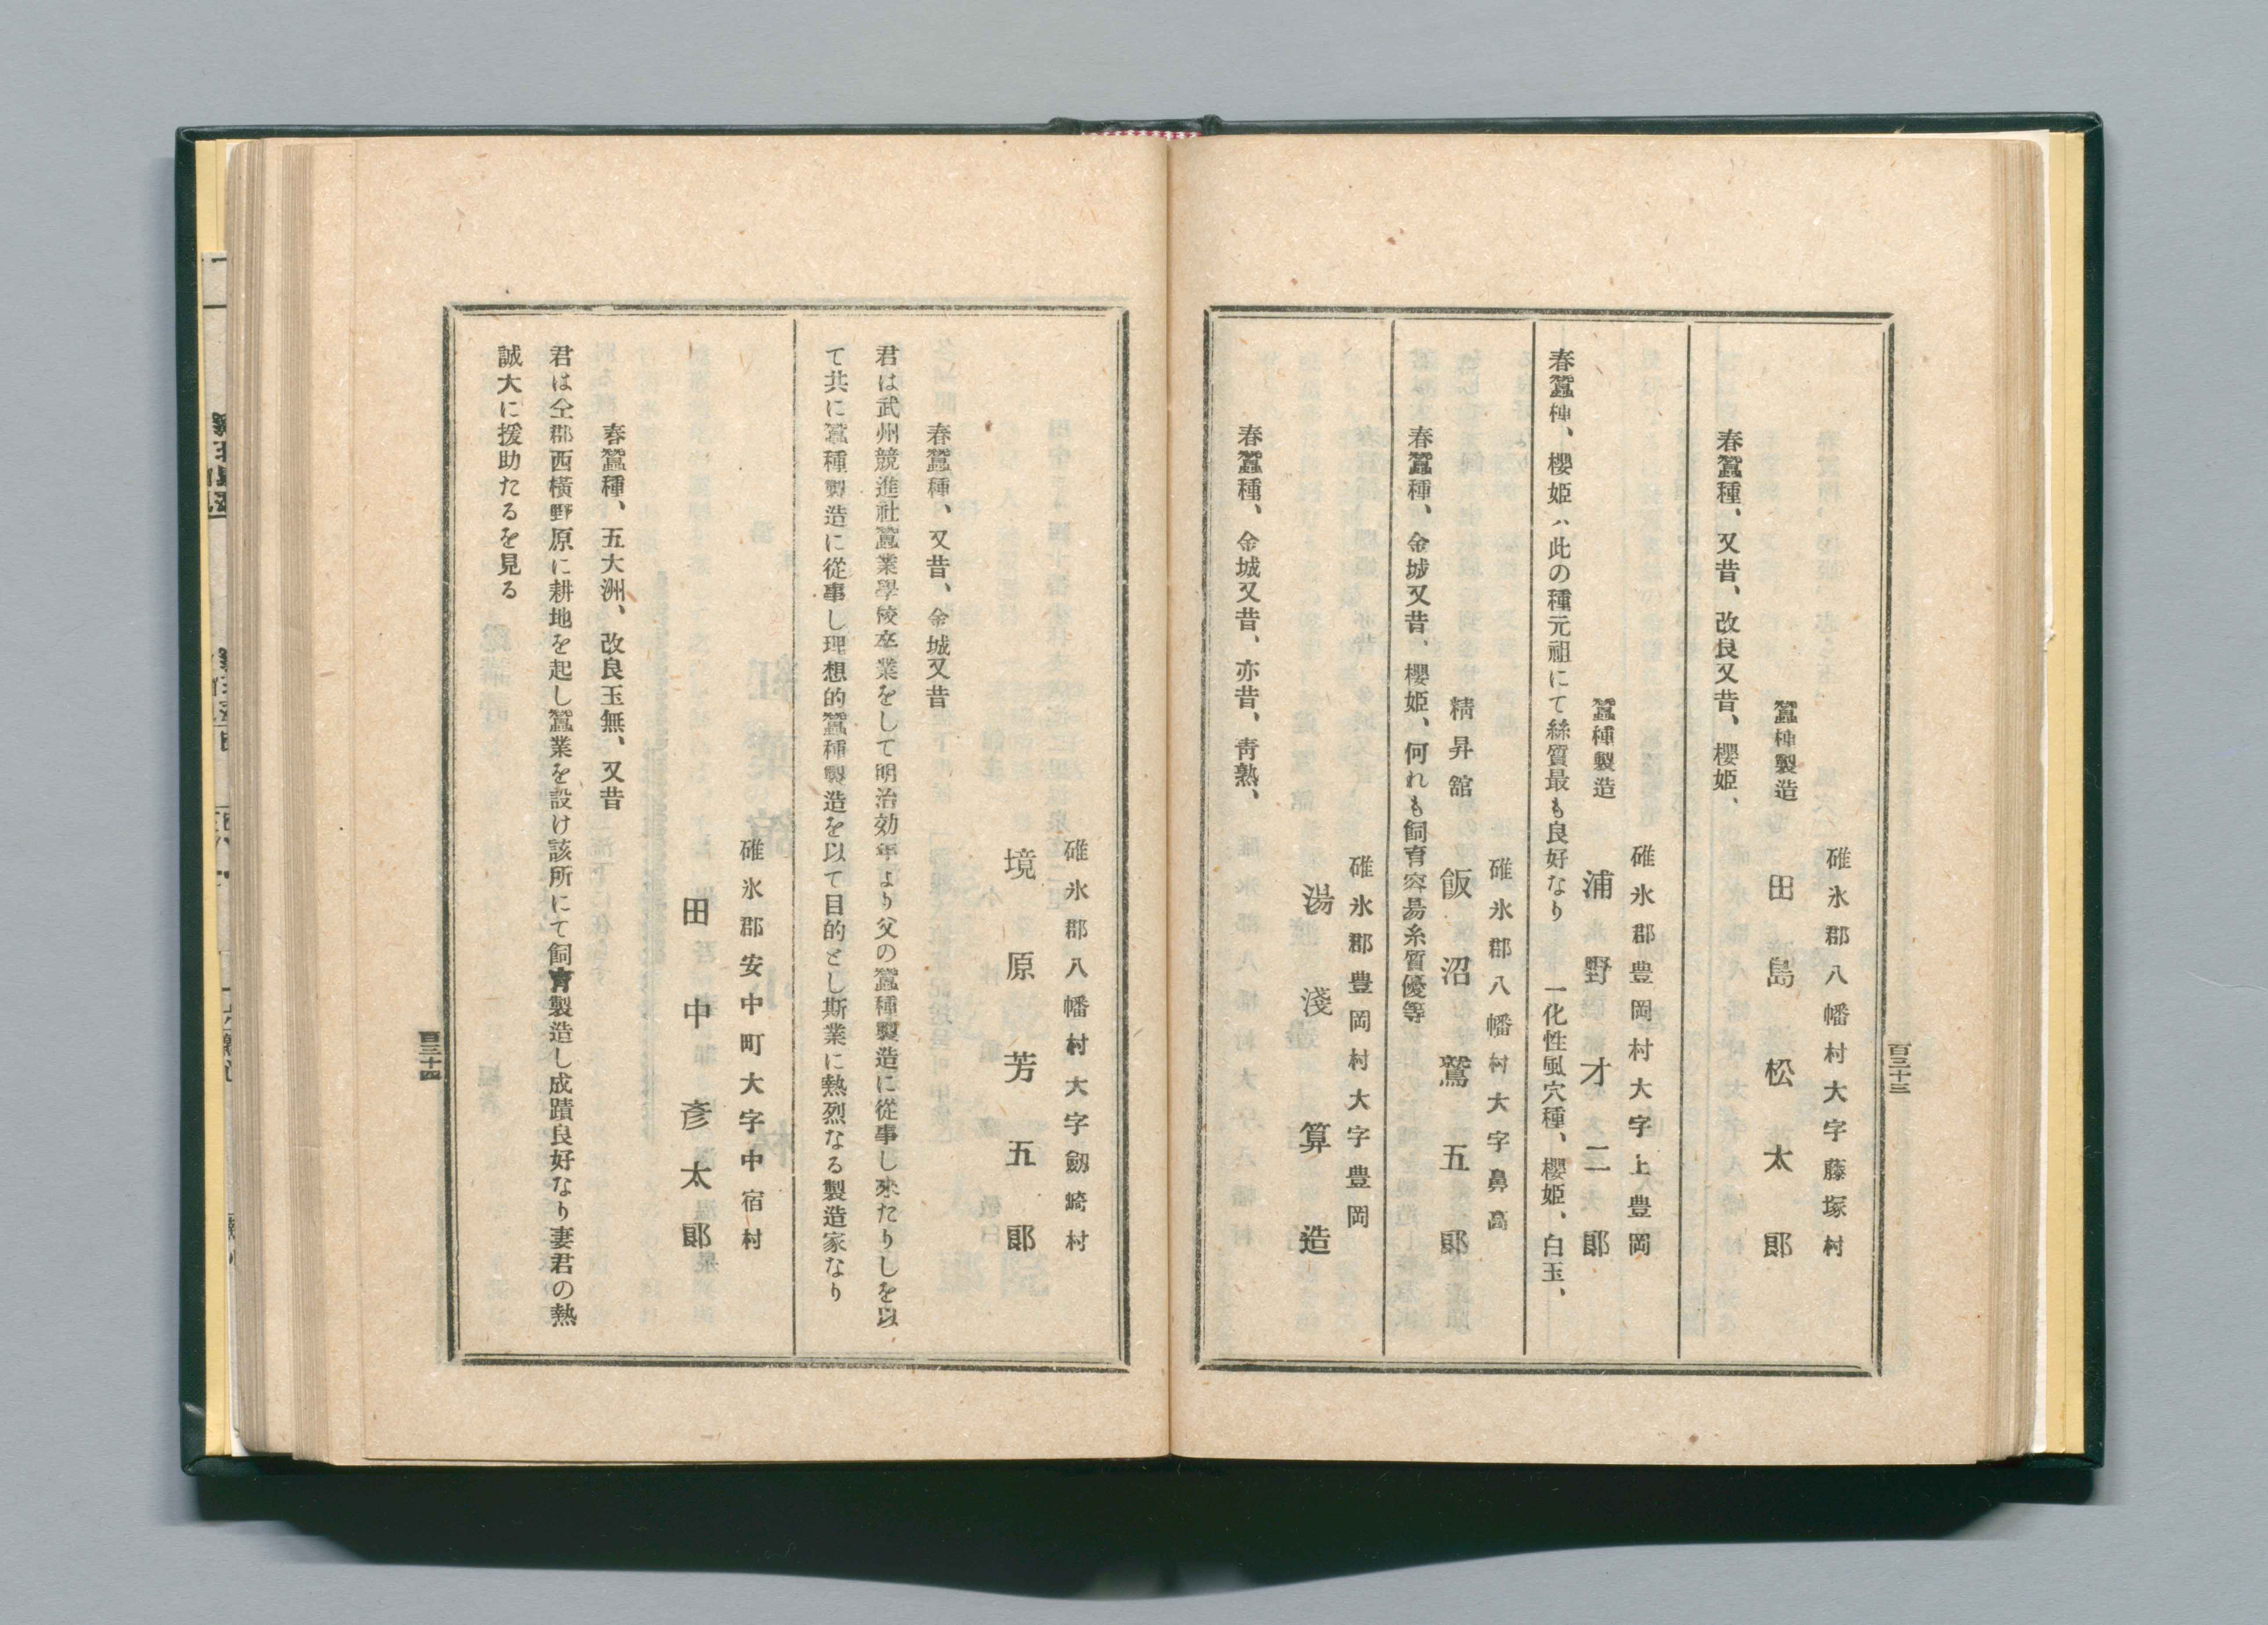 百三十三
碓氷郡八幡村大字藤塚村
蠶種製造 田島松太郎
春蠶種、又昔、改良又昔、櫻姫、
碓氷郡豊岡村大字上豊岡
蠶種製造 浦野才二郎
春蠶種、櫻姫ハ此の種元祖にて絲質最も良好なり 一化性風穴種、櫻姫、白玉、
碓氷郡八幡村大字鼻高
精昇舘 飯沼鷲五郎
春蠶種、金城又昔、櫻姫、何れも飼育容昜糸質優等
碓氷郡豊岡村大字豊岡
湯淺算造
春蠶種、金城又昔、亦昔、青熟、
碓氷郡八幡村大字劔崎村
境原芳五郎
春蠶種、又昔、金城又昔
君は武州競進社蠶業學校卒業をして明治効年より父の蠶種製造に從事し來たりしを以
て共に蠶種製造に從事し理想的蠶種製造を以て目的とし斯業に熱烈なる製造家なり
碓氷郡安中町大字中宿村
田中彦太郎
春蠶種、五大洲、改良玉無、又昔
君は仝郡西橫野原に耕地を起し蠶業を設け該所にて飼育製造し成蹟良好なり妻君の熱
誠大に援助たるを見る
百三十四